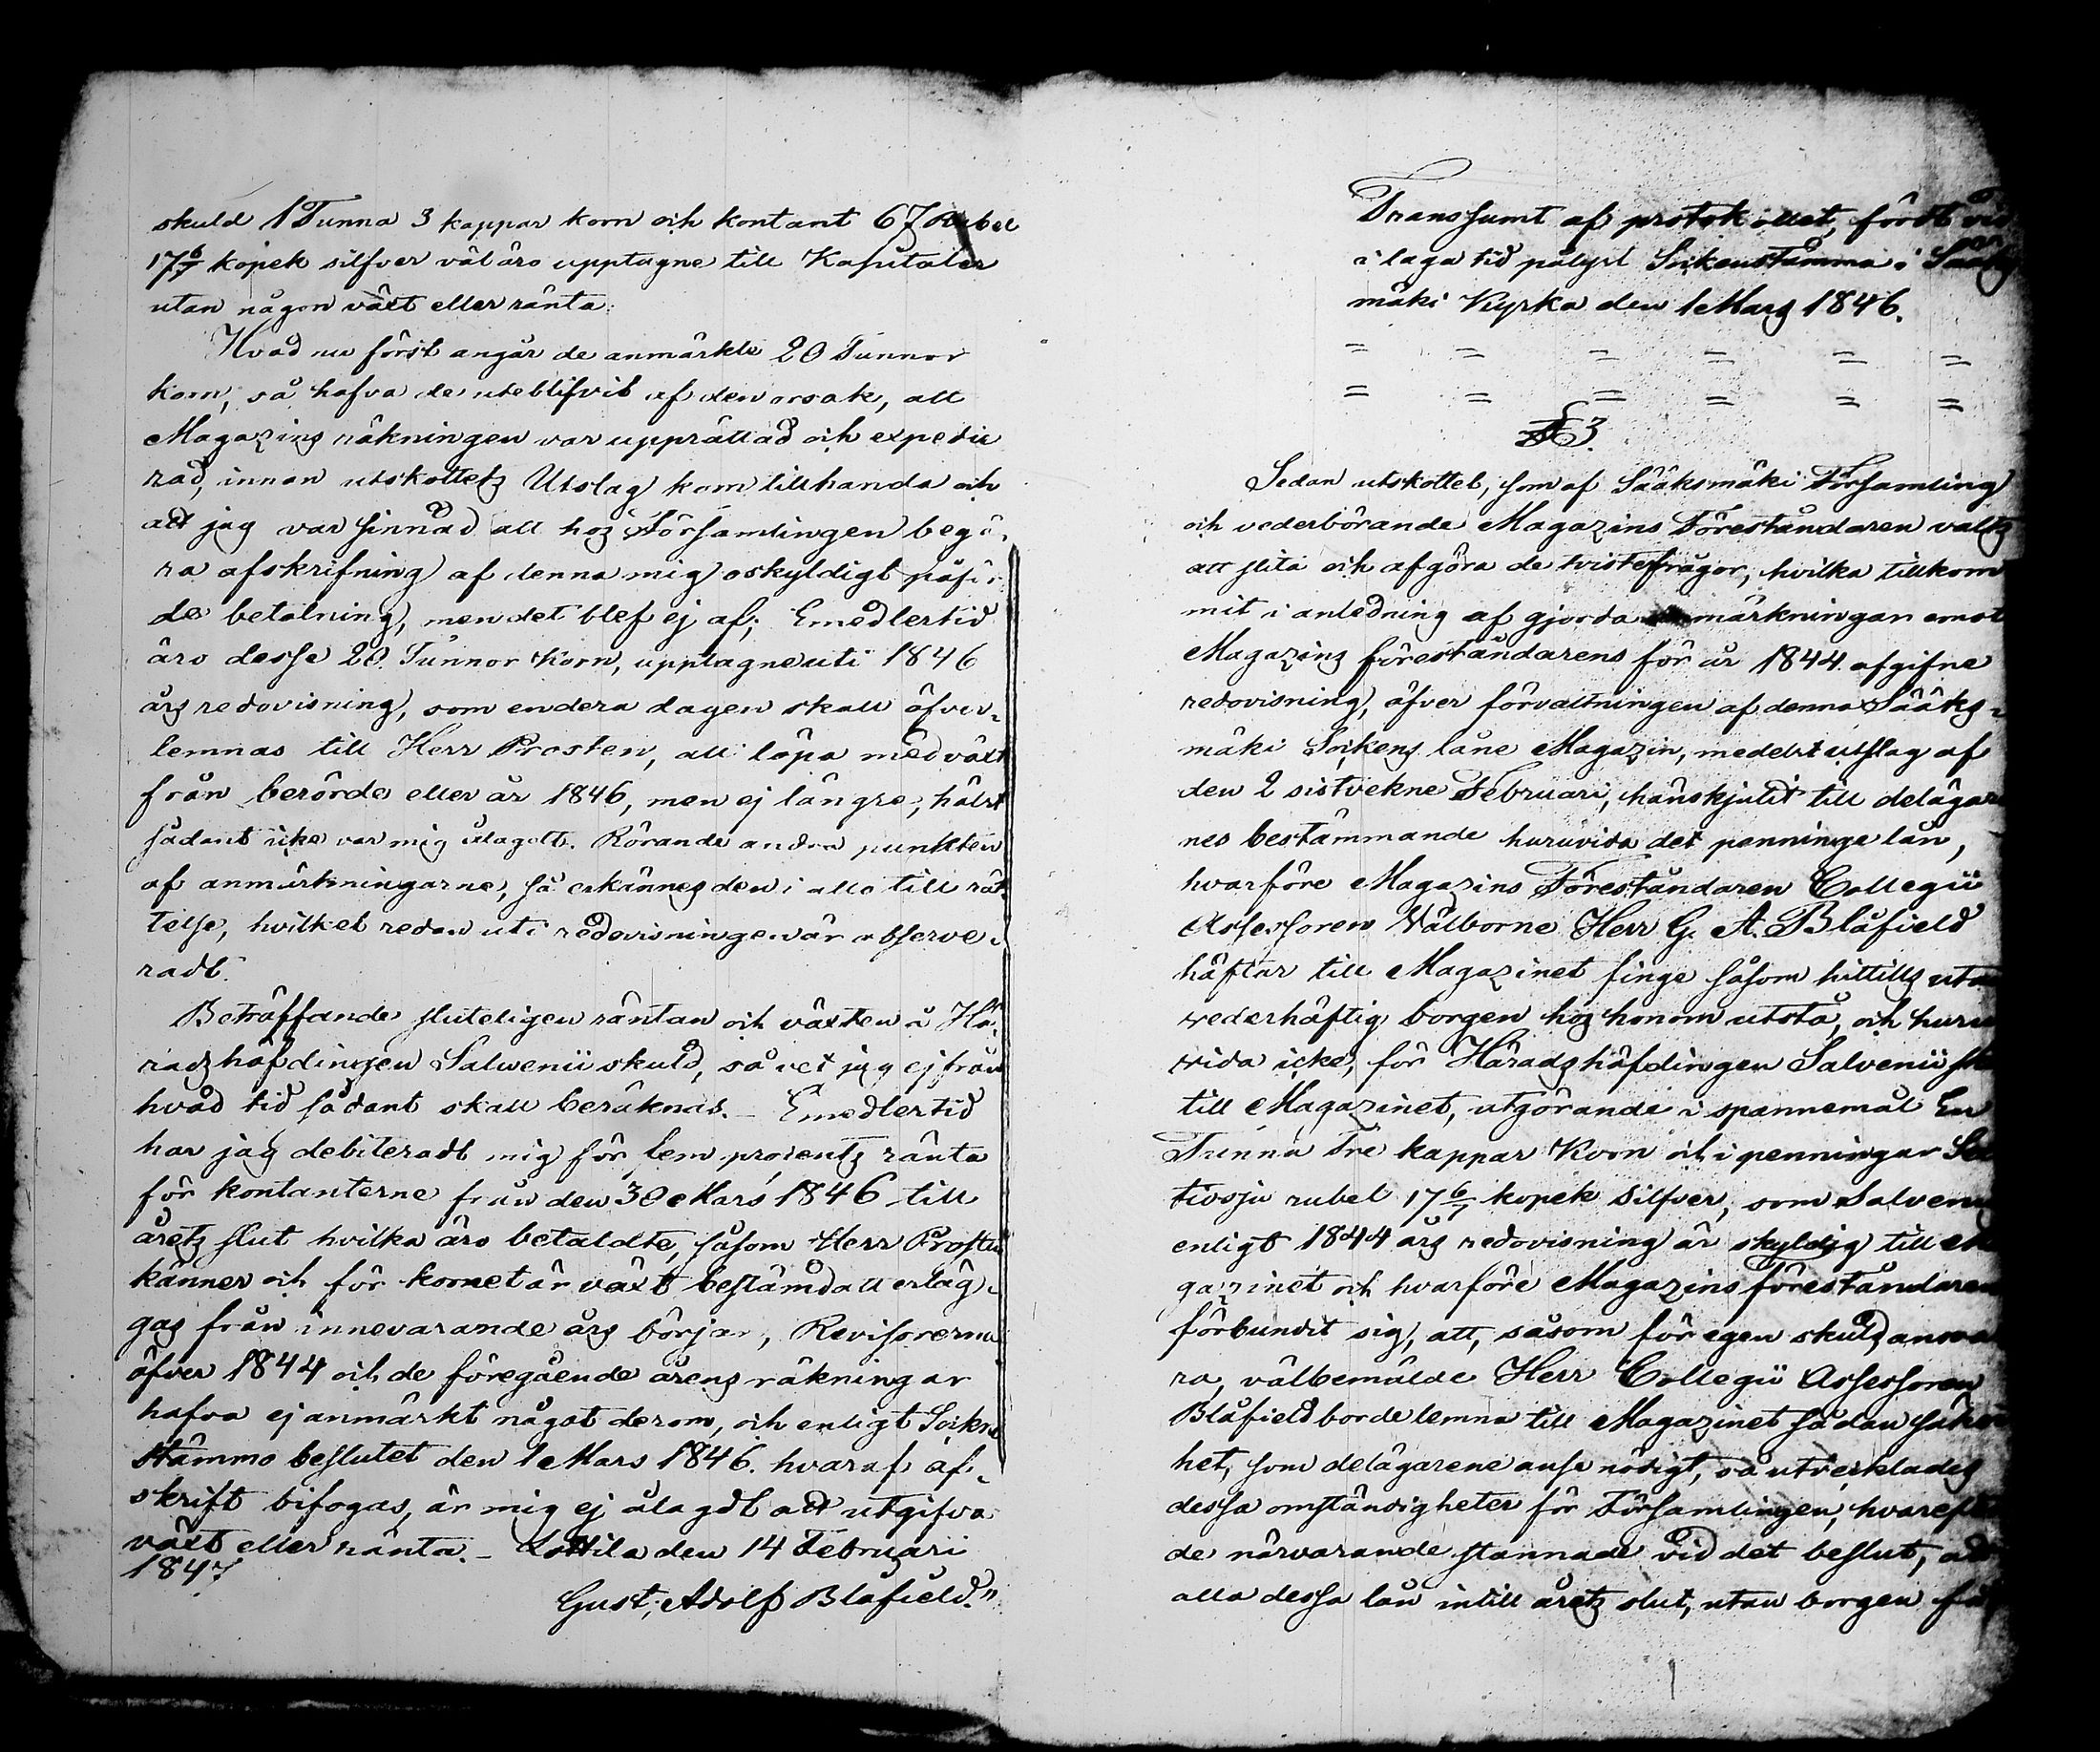 skuld 1 Tunna 3 kappar korn och kontant 67 Rubel
17 6/7 kopek silfver väl äro upptagne till Kapitaler
utan någon växt eller ränta:
Hvad nu först angår de anmärkte 20 Tunnor
korn, så hafva de uteblifvit af den orsak, att
Magazins räkningen var upprättad och expedie
rad, innan utskottets Utslag kom tillhanda och
att jag var sinnad att hos Församlingen begä-
ra afskrifning af denna mig oskyldigt påför
de betalning, men det blef ej af; Emedlertid
äro desse 20 Tunnor Korn, upptagne uti 1846
års redovisning, som endera dagen skall öfver-
lemnas till Herr Prosten, att löpa med växt
från berörde eller år 1846, men ej längre, hälst
sådant icke var mig ålagdt. Rörande andra punkten
af anmärkningarne, så erkännes den i allo till rät-
telse, hvilket redan uti redovisningen är observe-
radt.
Beträffande sluteligen räntan och växten å Hä-
radshöfdingen Salwenii skuld, så vet jag ej från
hvad tid sådant skall beräknas. – Emedlertid
har jag debiteradt mig för fem procents ränta
för kontanterne från den 30 Mars 1846 till
årets slut hvilka äro betaldte, såsom Herr Prosten
känner och för kornet är växt bestämd att erläg-
gas från innevarande års början, Revisorerna
öfver 1844 och de föregående årens räkningar
hafva ej anmärkt något derom, och enligt Sockne
stämmo beslutet den 1 Mars 1846. hvaraf af-
skrift bifogas, är mig ej ålagdt att utgifva
växt eller ränta. – Lottila den 14 Februari
1847
Gust. Adolf Blåfield."
Transsumt af protokollet, fördt vid
i laga tid pålyst Sockenstämma i Sääks
mäki Kyrka den 1 Mars 1846.
= = = = = =
= = = = = =
§ 3.
Sedan utskottet, som af Sääksmäki Församling
och vederbörande Magazins Föreståndaren valts
att slita och afgöra de tvistefrågor, hvilka tillkom
mit i anledning af gjorda anmärkningar emot
Magazins föreståndarens för år 1844 afgifne
redovisning, öfver förvaltningen af denna Sääks-
mäki Sockens låne Magazin, medelst utslag af
den 2 sistvekne Februari, hänskjutit till delägar
nes bestämmande huruvida det penninge lån,
hvarföre Magazins Föreståndaren Collegii
Assessoren Välborne Herr G. A. Blåfield
häftar till Magazinet finge såsom hittills utan
vederhäftig borgen hos honom utstå, och huru
vida icke, för Häradshöfdingen Salvenii
till Magazinet, utgörande i spannemål En
Tunna Tre kappar Korn och i penningar Sex
tiosju rubel 17 6/7 kopek silfver, som Salvenii
enligt 1844 års redovisning är skyldig till Ma
gazinet och hvarföre Magazins föreståndaren
förbundit sig, att, såsom för egen skuld ansva
ra, välbemälde Herr Collegii Assessoren
Blåfield borde lemna till Magazinet sådan säker
het, som delägarene anse nödigt, så utvecklades
dessa omständigheter för Församlingen, hvarefter
de närvarande stannade vid det beslut, att
alla dessa lån intill årets slut, utan borgen få